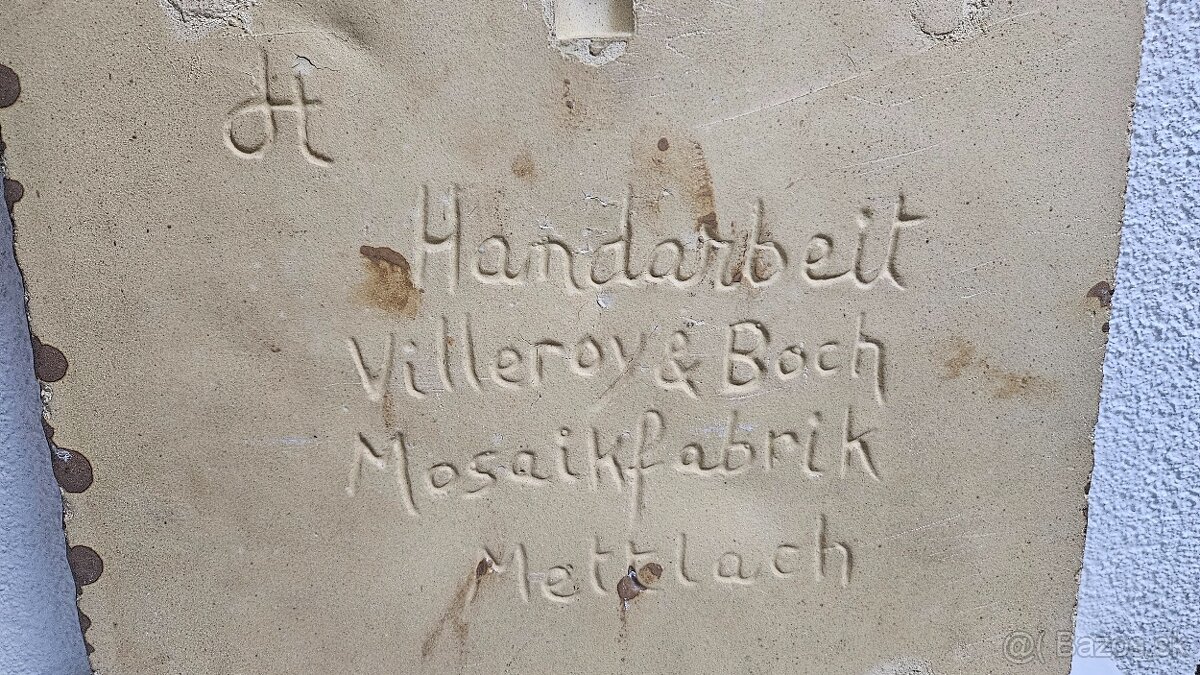 H
Handarbeit
Villeroy & Boch
Mosaikfabrik
Mettlach
@( Bazos.sk